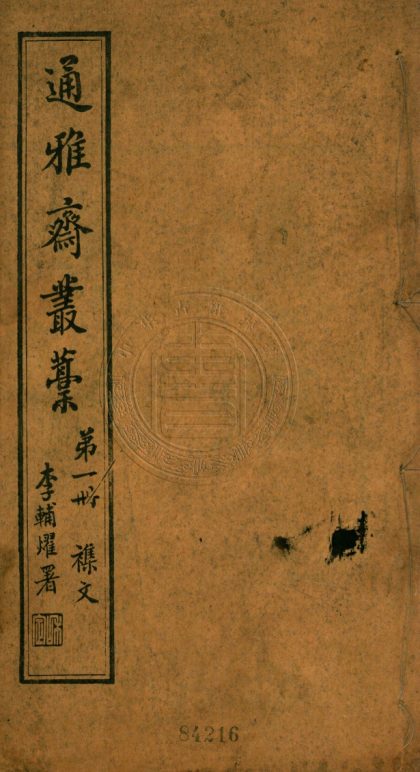 通雅齋叢藁
第一冊 襍文
李輔燿署
84216